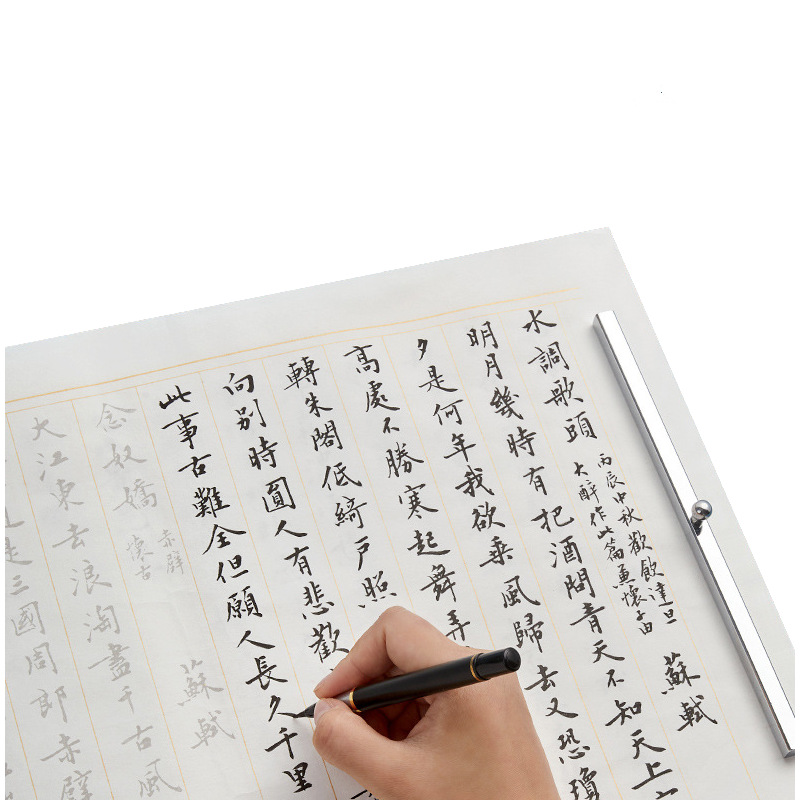 水調歌頭
丙辰中秋歡飲達旦
大醉作此篇兼懷子由
蘇軾
明月幾時有把酒問青天不知天上
夕是何年我欲乘風歸去又恐瓊
高處不勝寒起舞弄
轉朱閣低綺戶照
向別時圓人有悲歡
此事古難全但願人長久千里
念奴嬌
赤壁
懷古
蘇軾
大江東去浪淘盡千古風
是三國周郎赤壁